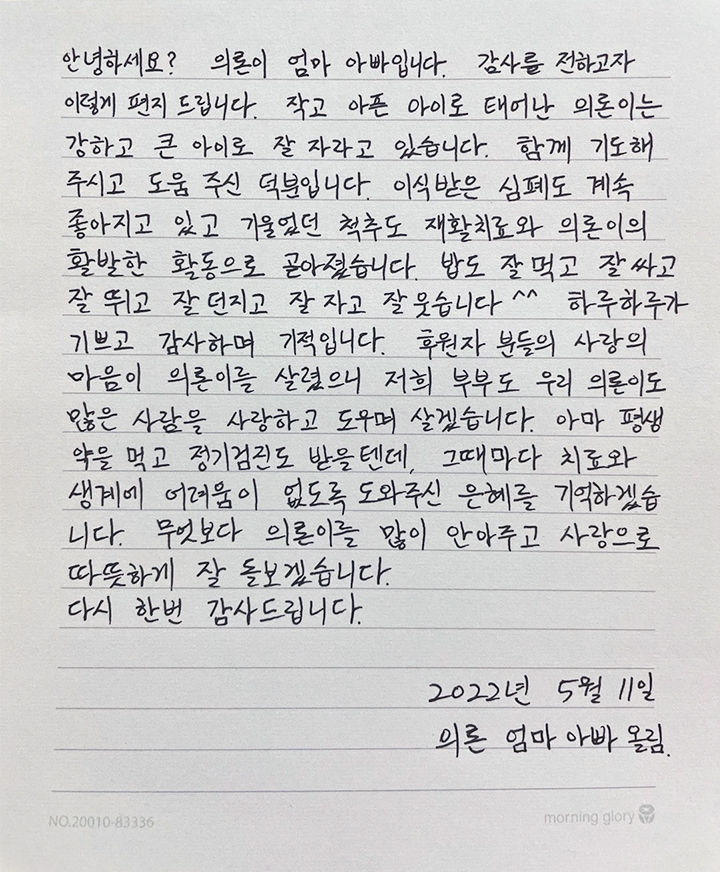 안녕하세요? 의론이 엄마 아빠입니다. 감사를 전하고자
이렇게 편지 드립니다. 작고 아픈 아이로 태어난 의론이는
강하고 큰 아이로 잘 자라고 있습니다. 함께 기도해
주시고 도움 주신 덕분입니다. 이식받은 심폐도 계속
좋아지고 있고 기울었던 척추도 재활치료와 의론이의
활발한 활동으로 곧아졌습니다. 밥도 잘 먹고 잘 싸고
잘 뛰고 잘 던지고 잘 자고 잘 웃습니다 ^^ 하루하루가
기쁘고 감사하며 기적입니다. 후원자 분들의 사랑의
마음이 의론이를 살렸으니 저희 부부도 우리 의론이도
많은 사람을 사랑하고 도우며 살겠습니다. 아마 평생
약을 먹고 정기검진도 받을텐데, 그때마다 치료와
생계에 어려움이 없도록 도와주신 은혜를 기억하겠습
니다. 무엇보다 의론이를 많이 안아주고 사랑으로
따뜻하게 잘 돌보겠습니다.
다시 한번 감사드립니다.
2022년 5월 11일
의론 엄마 아빠 올림.
NO.20010-83336
morning glory